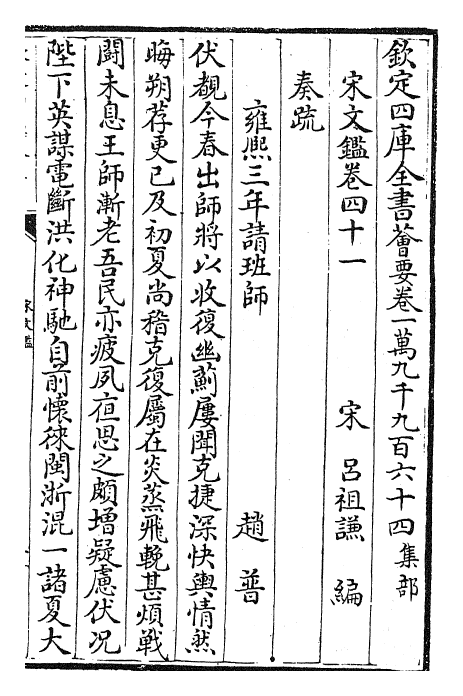 欽定四庫全書薈要卷一萬九千九百六十四集部
宋文鑑卷四十一
宋 呂祖謙 編
奏䟽
雍熙三年請班師
趙普
伏覩今春出師將以收復幽薊屢聞克捷深快輿情然
晦朔荐更已及初夏尚稽克復屬在炎蒸飛輓甚煩戰
鬬未息王師漸老吾民亦疲夙夜思之頗增疑慮伏況
陛下英謀電斷洪化神馳自前懷徠閩浙混一諸夏大
宋文鑑